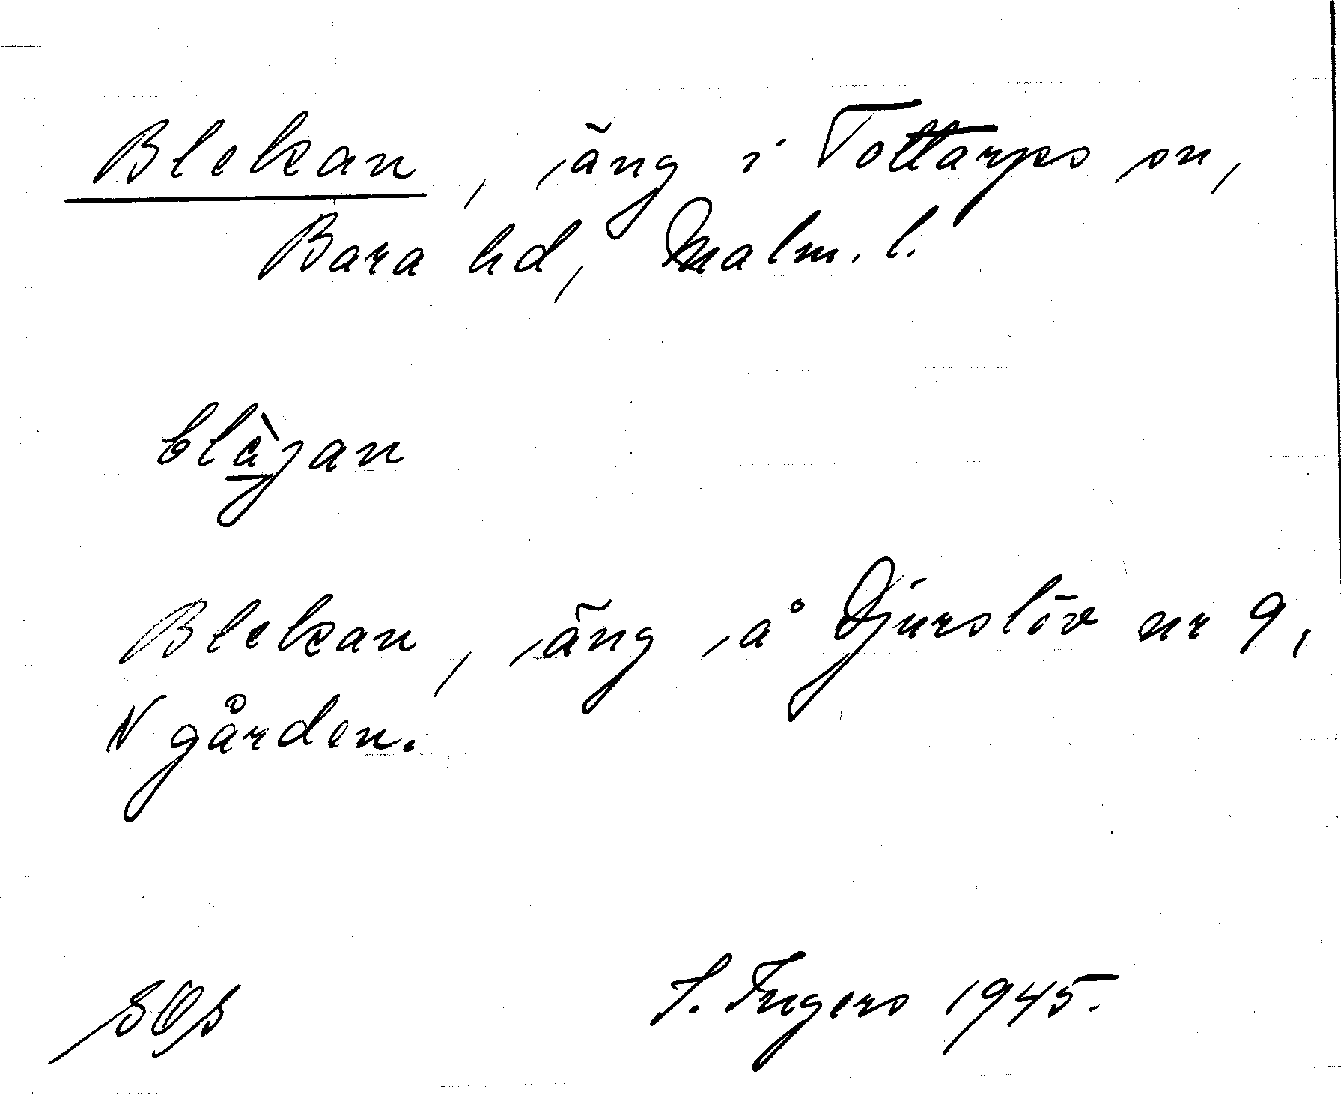 Blekan, äng i Tottarps sn,
Bara hd, Malm. l.
blàjan
Blekan, äng å Djurslöv nr 9,
N gården.
SOS
I. Ingers 1945.